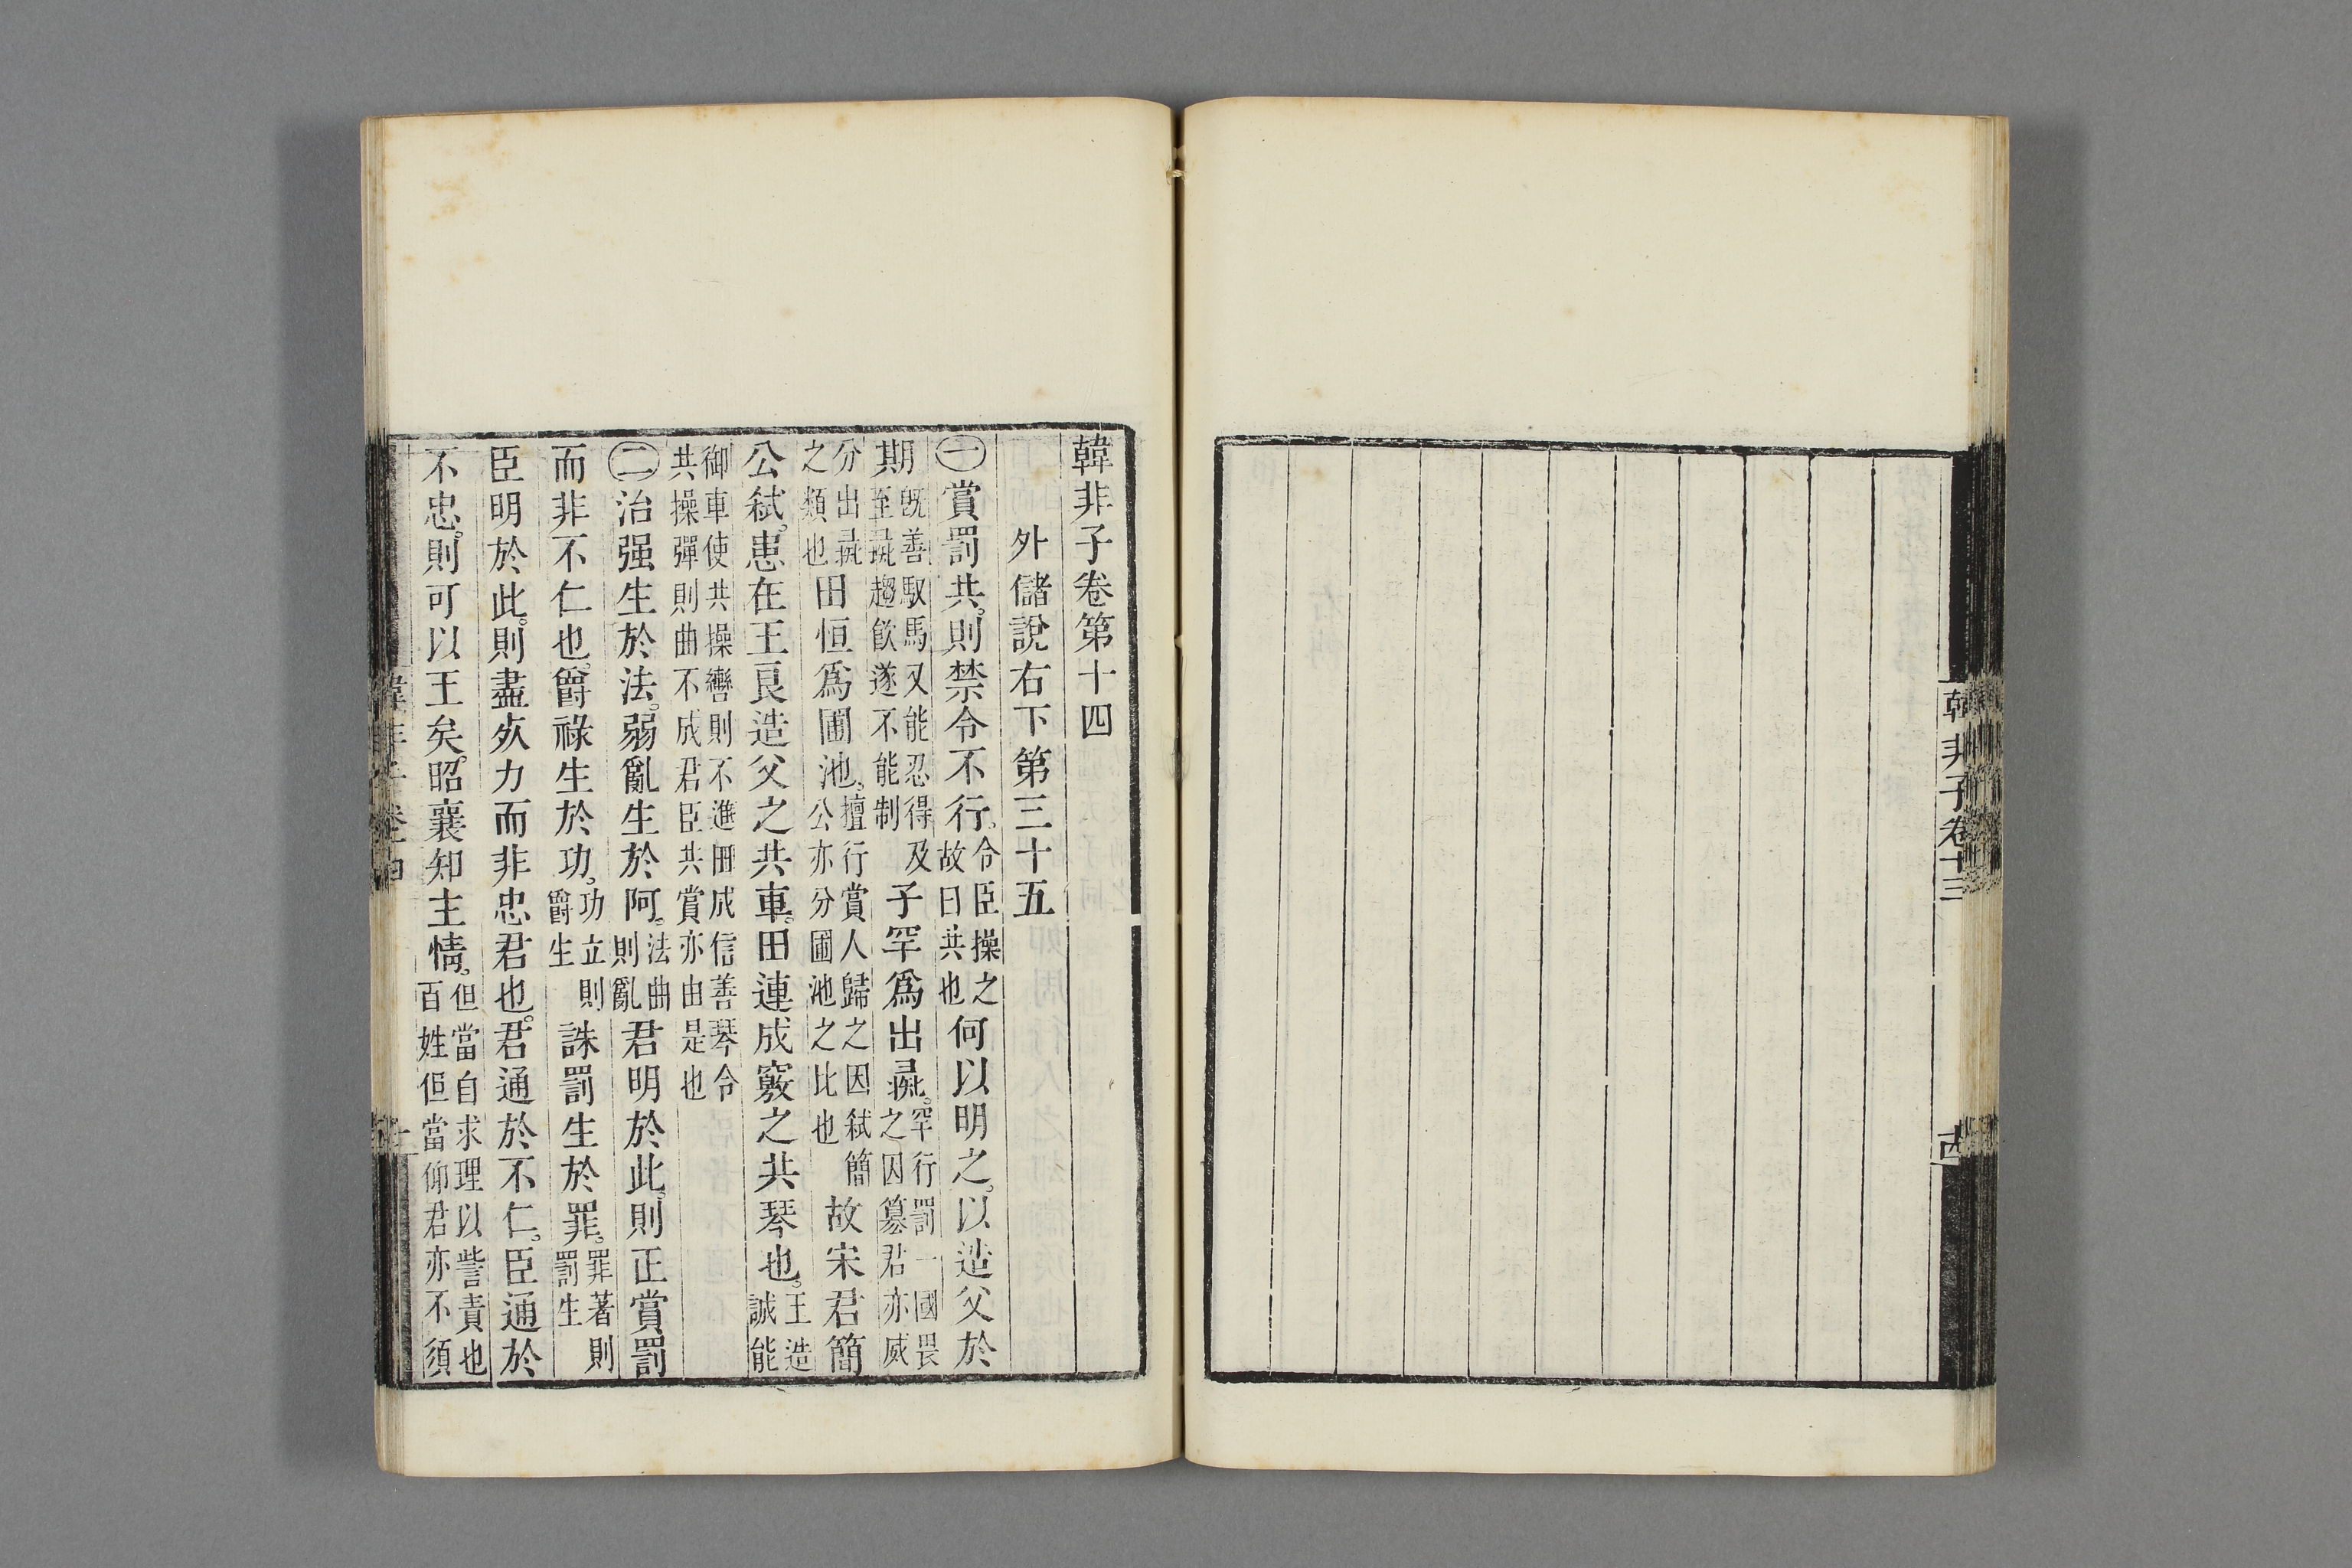 韓非子卷十三
古
韓非子卷第十四
外儲說右下第三十五
㊀賞罰共。則禁令不行。令臣操之故曰共也何以明之。以造父於
期旣善馭馬又能忍得及至彘趨飮遂不能制子罕爲出彘。罕行罰一國畏之因簒君亦威
分出彘之類也田恒爲圃池。擅行賞人歸之因弑簡公亦分圃池之比也故宋君簡
公弑。患在王良造父之共車。田連成竅之共琴也。王造誠能
御車使共操轡則不進田成信善琴令共操彈則曲不成君臣共賞亦由是也
㊁治强生於法。弱亂生於阿。法曲則亂君明於此。則正賞罰
而非不仁也。爵祿生於功。功立則爵生誅罰生於罪。罪著則罰生
臣明於此。則盡𣦸力而非忠君也。君通於不仁。臣通於
不忠。則可以王矣。昭襄知主情。但當自求理以訾責也百姓但當仰君亦不須